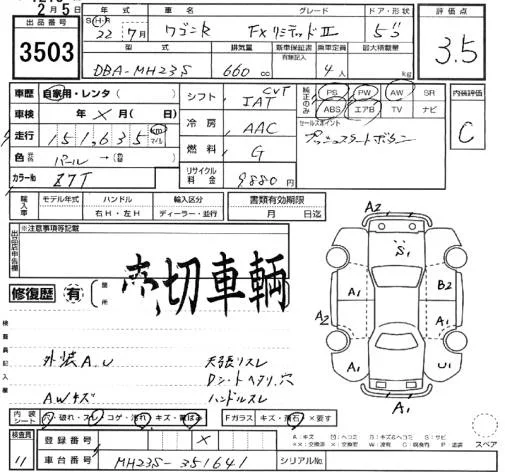 2月5日
出品番号
3503
年式
車名
グレード
ドア・形状
評価点
S H R
22 7月
ワゴンR
FXリミテッドII
5
3.5
型式
排気量
新車保証書
有無記入
乗車定員
最大積載量
DBA-MH23S
660 cc
4人
kg
車歴 自家用・レンタ( )
シフト
CVT
IAT
純正のみ
PS PW AW SR
ABS エアB TV ナビ
内装評価
C
車検 年 × 月( 日)
冷房
AAC
セールスポイント
プッシュスタートボタン
走行 151,635 km マイル
燃料
G
色 パール →(色替)
リサイクル料金
9880円
カラーNo
Z7T
輸入車
モデル年式
ハンドル
右H・左H
輸入区分
ディーラー・並行
書類有効期限
月 日迄
出品店申告欄
※注意事項等記載
売切車輌
修復歴 有
箇所
検査員記入欄
外装A.U
天張リスレ
Dシートヘタリ、穴
AWキズ
ハンドルスレ
A2
S1
A1
B2
A2
A1
U1
A1
A1
内装シート
穴・破れ・スレ コゲ・汚れ キズ・黄ばみ
Fガラス キズ・飛石 ×要す
スペア
検査員
11
登録番号
×
車台番号
MH23S-351641
シリアルNo.